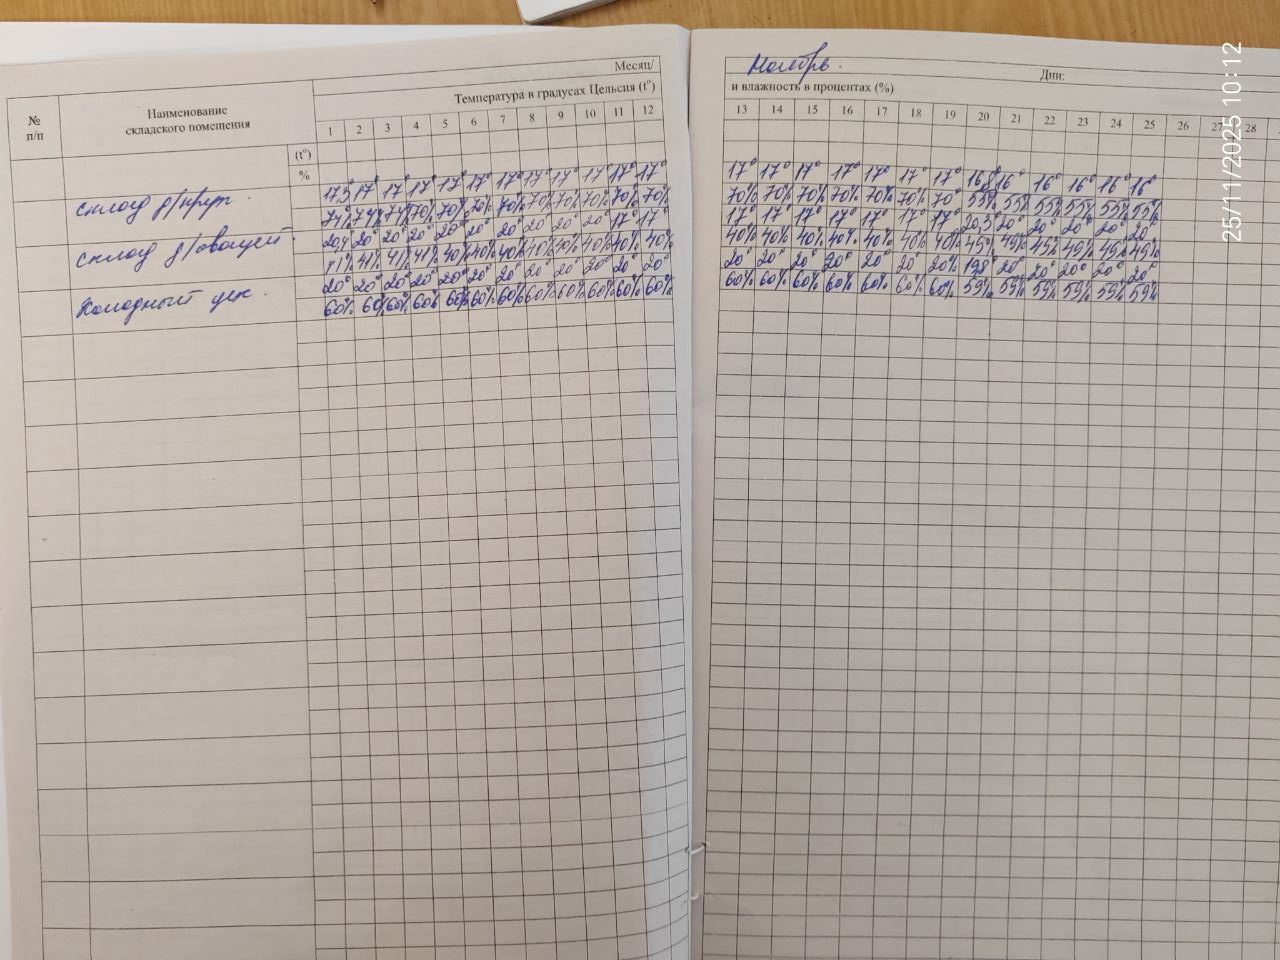 Месяц/ Ноябрь. Дни:
№ п/п
Наименование складского помещения
Температура в градусах Цельсия (t°) и влажность в процентах (%)
1 2 3 4 5 6 7 8 9 10 11 12 13 14 15 16 17 18 19 20 21 22 23 24 25 26 27 28
(t°)
%
17,3° 17° 17° 17° 17° 17° 17° 17° 17° 17 17° 17° 17° 17° 17° 17° 17° 17° 17° 16,8° 16° 16° 16° 16° 16°
склад д/круп.
74% 74% 74% 70% 70% 70% 70% 70% 70% 70% 70% 70% 70% 70% 70% 70% 70% 70% 70° 55% 55% 55% 55% 55% 55%
20° 20° 20° 20° 20° 20° 20° 20° 20° 17° 17° 17° 17° 17° 17° 17° 17° 17° 20,3° 20° 20° 20° 20° 20°
склад д/овощей.
41% 41% 41% 40% 40% 40% 40% 40% 40% 40% 40% 40% 40% 40% 40% 40% 40% 40% 45% 45% 45% 45% 45% 45%
20° 20° 20° 20° 20° 20° 20° 20° 20° 20° 20° 20° 20° 20° 20° 20° 20° 20° 20% 19,8° 20° 20° 20° 20° 20°
Холодный цех.
60% 60% 60% 60% 60% 60% 60% 60% 60% 60% 60% 60% 60% 60% 60% 60% 60% 60% 60% 59% 59% 59% 59% 59% 59%
25/11/2025 10:12